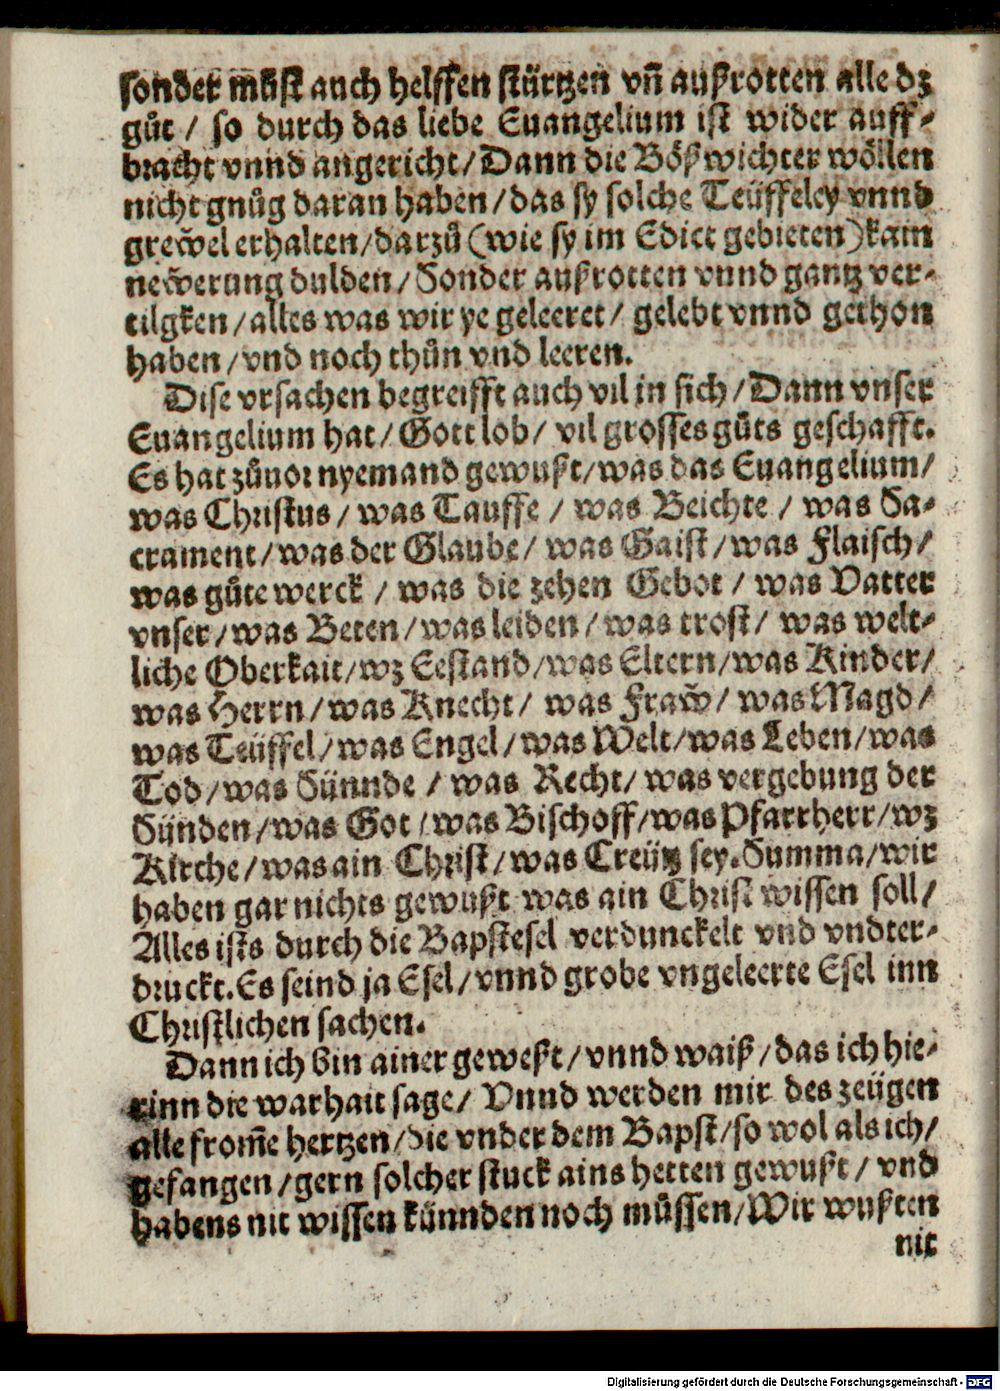 sonder můst auch helffen stürtzen vñ außrotten alle dz
gůt / so durch das liebe Euangelium ist wider auff-
bracht vnnd angericht / Dann die Bößwichter wöllen
nicht gnůg daran haben / das sy solche Teüffeley vnnd
grew̆el erhalten / darzů (wie sy im Edict gebieten) kain
new̆erung dulden / Sonder außrotten vnnd gantz ver-
tilgken / alles was wir ye geleeret / gelebt vnnd gethon
haben / vnd noch thůn vnd leeren.
Dise vrsachen begreifft auch vil in sich / Dann vnser
Euangelium hat / Gott lob / vil grosses gůts geschafft.
Es hat zůuor nyemand gewußt / was das Euangelium /
was Christus / was Tauffe / was Beichte / was Sa-
crament / was der Glaube / was Gaist / was Flaisch /
was gůte werck / was die zehen Gebot / was Vatter
vnser / was Beten / was leiden / was trost / was welt-
liche Oberkait / wz Eestand / was Eltern / was Kinder /
was Herrn / was Knecht / was Fraw̆ / was Magd /
was Teüffel / was Engel / was Welt / was Leben / was
Tod / was Sünnde / was Recht / was vergebung der
Sünden / was Got / was Bischoff / was Pfarrherr / wz
Kirche / was ain Christ / was Creütz sey. Summa / wir
haben gar nichts gewußt was ain Christ wissen soll /
Alles ists durch die Bapstesel verdunckelt vnd vndter-
druckt. Es seind ja Esel / vnnd grobe vngeleerte Esel inn
Christlichen sachen.
Dann ich bin ainer geweßt / vnnd waiß / das ich hie-
rinn die warhait sage / Vnnd werden mir des zeügen
alle from̃e hertzen / die vnder dem Bapst / so wol als ich /
gefangen / gern solcher stuck ains hetten gewußt / vnd
habens nit wissen künnden noch müssen / Wir wußten
nit
Digitalisierung gefördert durch die Deutsche Forschungsgemeinschaft - DFG